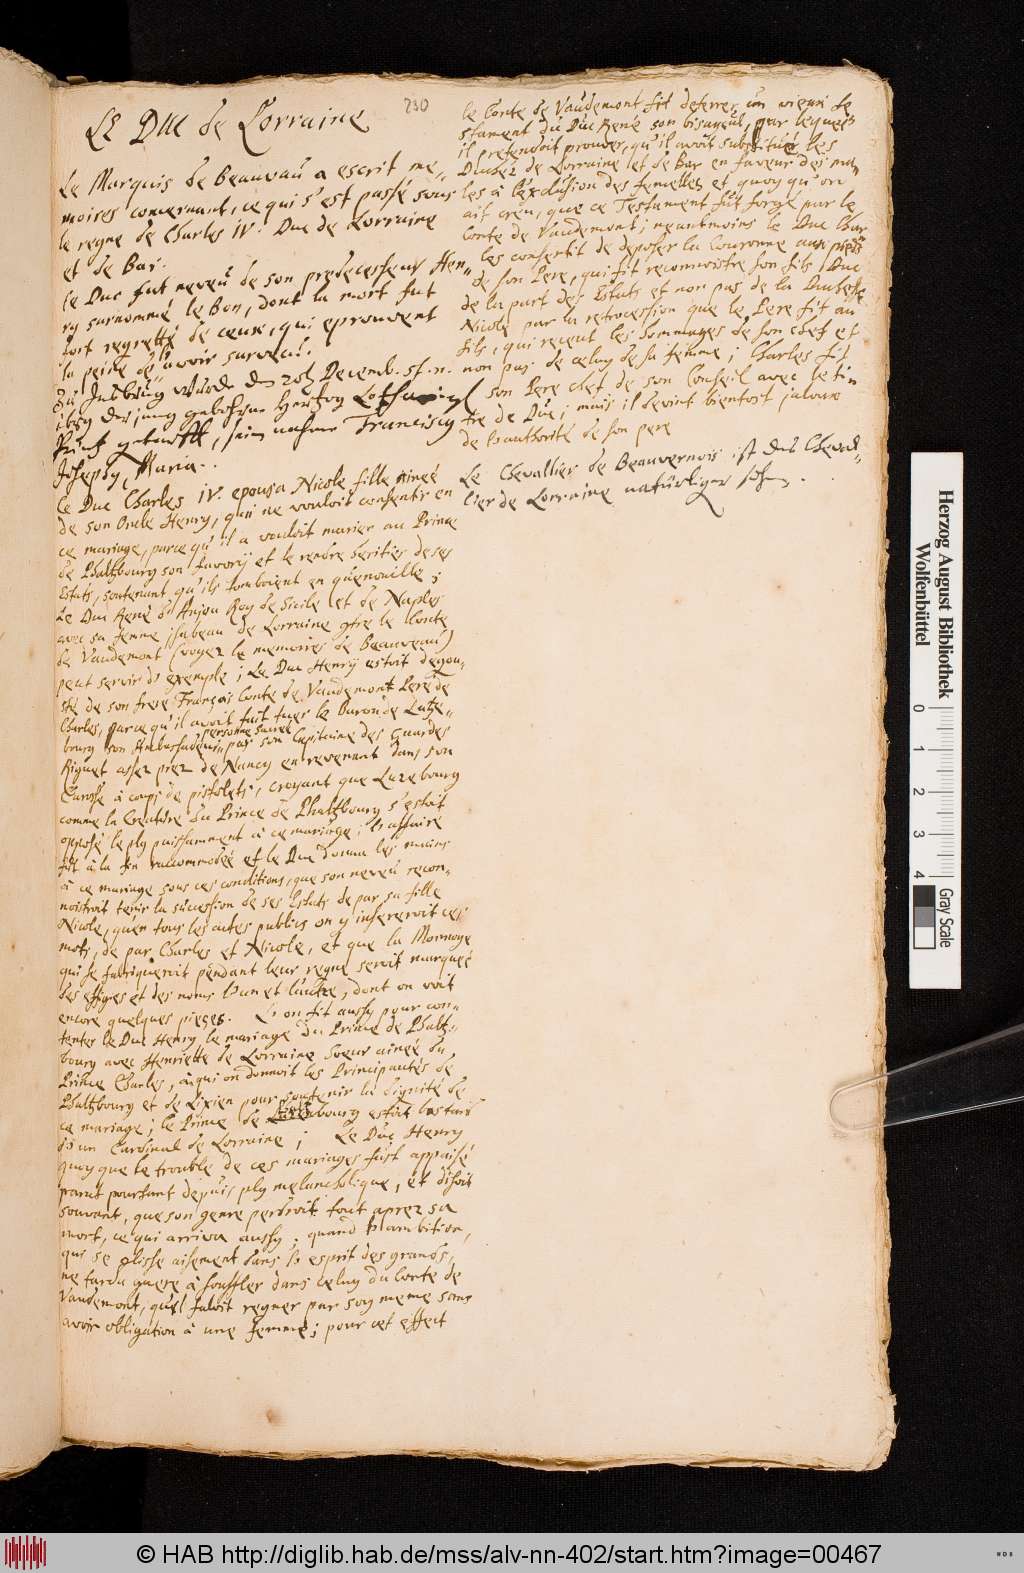 230
LE DUC de Lorraine
Le Marquis de Beauvaù a escrit me„
moires concernant, ce qui s'est passé sous
le regne de Charles IV. Duc de Lorraine
et de Bar.
le Duc fut neveù de son predecesseur Hen„
ry surnommé le Bon, dont la mort fut
fort regretté de ceux, qui eprouvent
la peine de l'avoir survecu.
Zu Insbrug wurde den Decemb. st. n.
der jung gebohrne Hertzog Lotharing
Printz getaufft, sein nahme Franciscq
Josephq, Maria.
Le Duc Charles IV. epousa Nicole fille ainée
de son Oncle Henry, qui ne vouloit consentir en
ce mariage, parce qu'il a vouloit marier au Prince
de Phaltzbourg son favorÿ et le rendre heritier de ses
Estats, soutenant qu'ils tomboient en quenouille;
Le Duc René d'Anjou Roy de Sicile et de Naples
avec sa femme Isabeau de Lorraine contre le Conte
de Vaudemont (voyez le memoires de Beauveau)
peut servir d'exemple; Le Duc Henrÿ estoit degou„
sté de son frere François Conte de Vaudemont Pere de
Charles, parce qu'il avoit fait tuer le Baron de Lutze„
personne sacrée
bourg son Ambassadeur, par son Capitaine des guardes
Riguet assez prez de Nancy en revenant dans son
Carosse à coups de pistolets, croyant que Luzebourg
comme la Creature du Prince de Phaltzbourg s'estoit
opposé le plq puissamment à ce mariage; l'affaire
fût à la fin raccommodée et le Duc donna les mains
à ce mariage sous ces conditions, que son neveu recon„
noistroit tenir la succession de ses Estats de par sa fille
Nicole, qu'en tous les actes publics on y insereroit ces
mots, de par Charles et Nicole, et que la Monnoye
qui se fabriqueroit pendant leur regne seroit marqueé
des effigies et des noms l'un et l'autre, dont on voit
encore quelques pieces. L'on fit aussy pour con„
tenter le Duc Henry le mariage du Prince de Phaltz„
bourg avec Henriette de Lorraine Soeur ainée du
Prince Charles, à qui on donnoit les Principautés de
Phaltzbourg et de Lixien pour soutenir la dignité de
ce mariage; le Prince de bourg estoit bastard
d'un Cardinal de Lorraine; Le Duc Henry,
quoy que le trouble de ces mariages fût appaisé
parut pourtant depuis plq melancholique, et disoit
souvant, que son genre perdroit tout aprez sa
mort, ce qui arriva aussy; quand l'ambition,
qui se glisse aisement dans l'esprit des grands,
ne tarda guere à souffler dans celuy du Conte de
Vaudemont, qu'il faloit regner par soy meme sans
avoir obligation à une femme; pour cet effect
le Conte de Vaudemont fit deterrer un vieux te
stament du Duc René son bisayeul, par lequel
il pretendoit prouver, qu'il avoit substitué les
Duchéz de Lorraine et de Bar en faveur des mas„
les à l'exclusion des femelles et quoy qu'on
ait creu, que ce Testament fut forgé par le
Conte de Vaudemont; neantmoins le Duc Char
les consentit de deposer la Couronne aux pieds
de son Pere, qui fit reconnoistre son fils Duc
de la part des Estats et non pas de la Duchesse
Nicole par la retrocession que le Pere fit au
fils, qui receut les hommages de son chef et
non pas de celuy de sa femme; Charles fit
son Pere chef de son Conseil avec le ti„
tre de Duc; mais il devint bientost jaloux
de l'authorité de son pere
Le Chevallier de Beauvernois ist des Cheval„
lier de Lorraine natürliger sohn.
Herzog August Bibliothek
Wolfenbüttel
0 1 2 3 4
Gray Scale
© HAB http://diglib.hab.de/mss/alv-nn-402/start.htm?image=00467